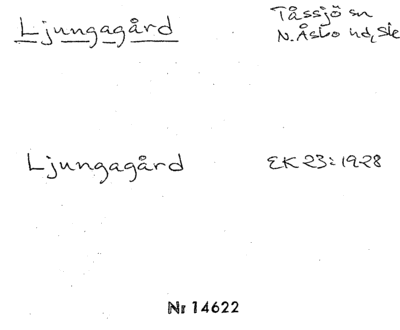 Ljungagård
Tåssjö sn
N. Åsbo hd, Sk
Ljungagård
EK 23: 1928
Nr 14622